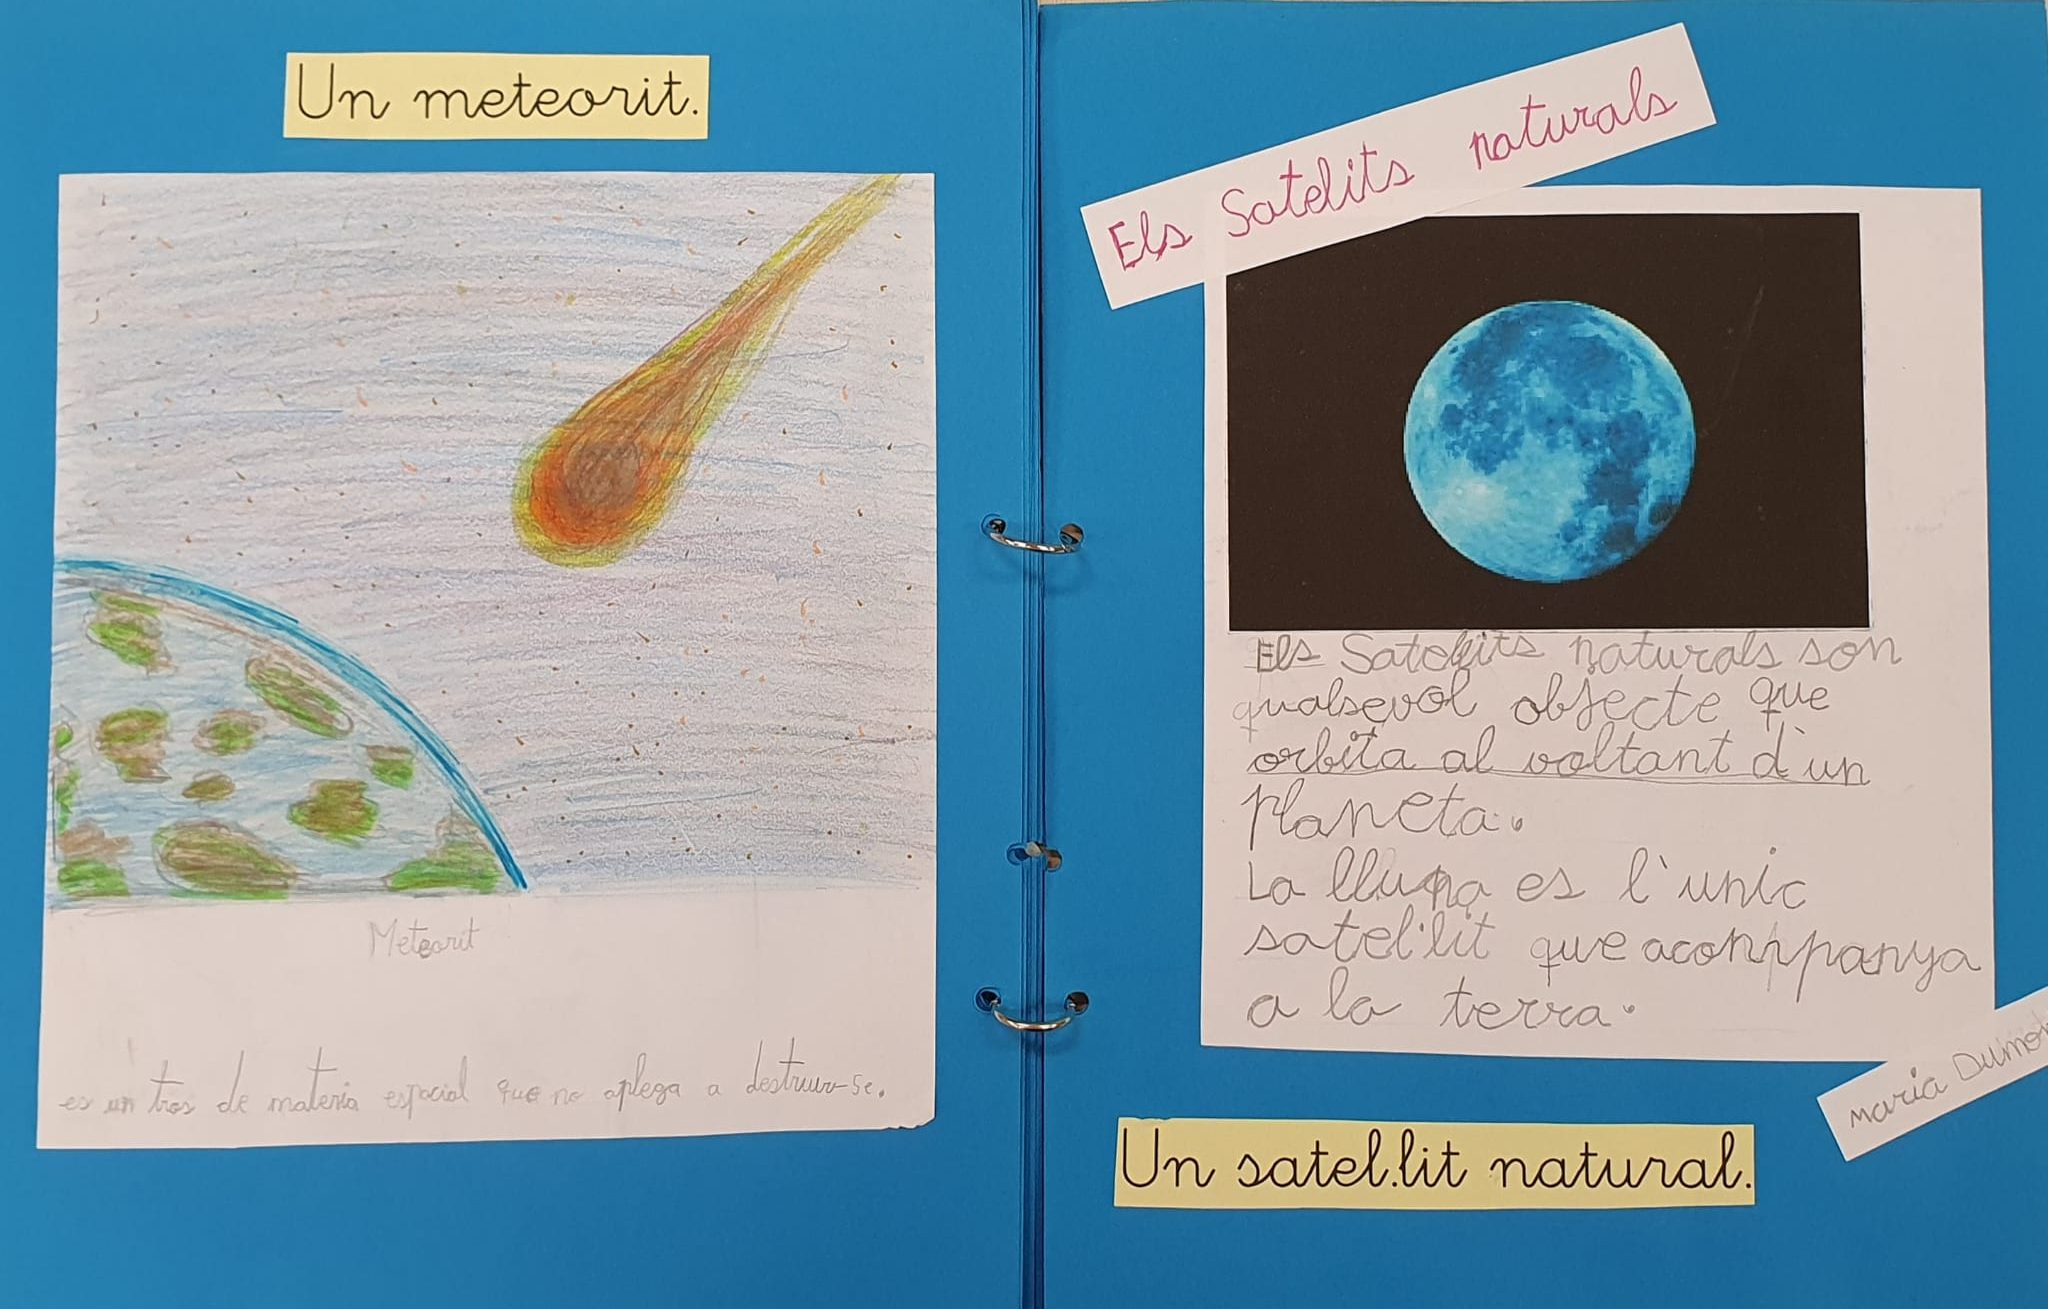 Un meteorit.
Meteorit
es un tros de materia espacial que no aplega a destruir-se.
Els Satelits naturals
Els Satelits naturals son
qualsevol objecte que
orbita al voltant d'un
planeta.
La lluna es l'unic
satel·lit que acompanya
a la terra.
maria
Un satel.lit natural.